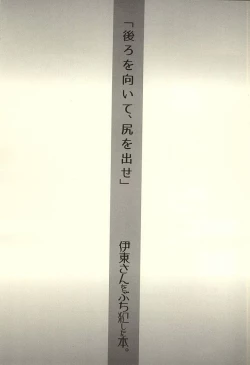 「後ろを向いて、尻を出せ」
伊東さんをぶち犯した本。